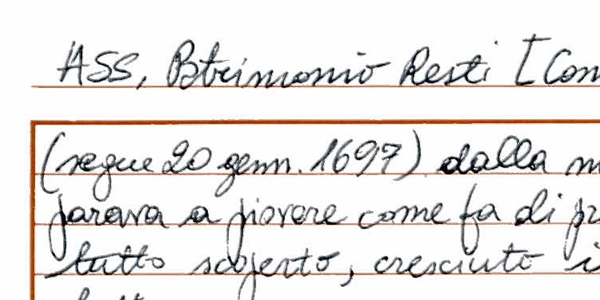 ASS, Ptrimonio Resti [Con
(segue 20 genn. 1697) dalla m
parava a piovere come fa di pr
tutto scoperto, cresciuto i